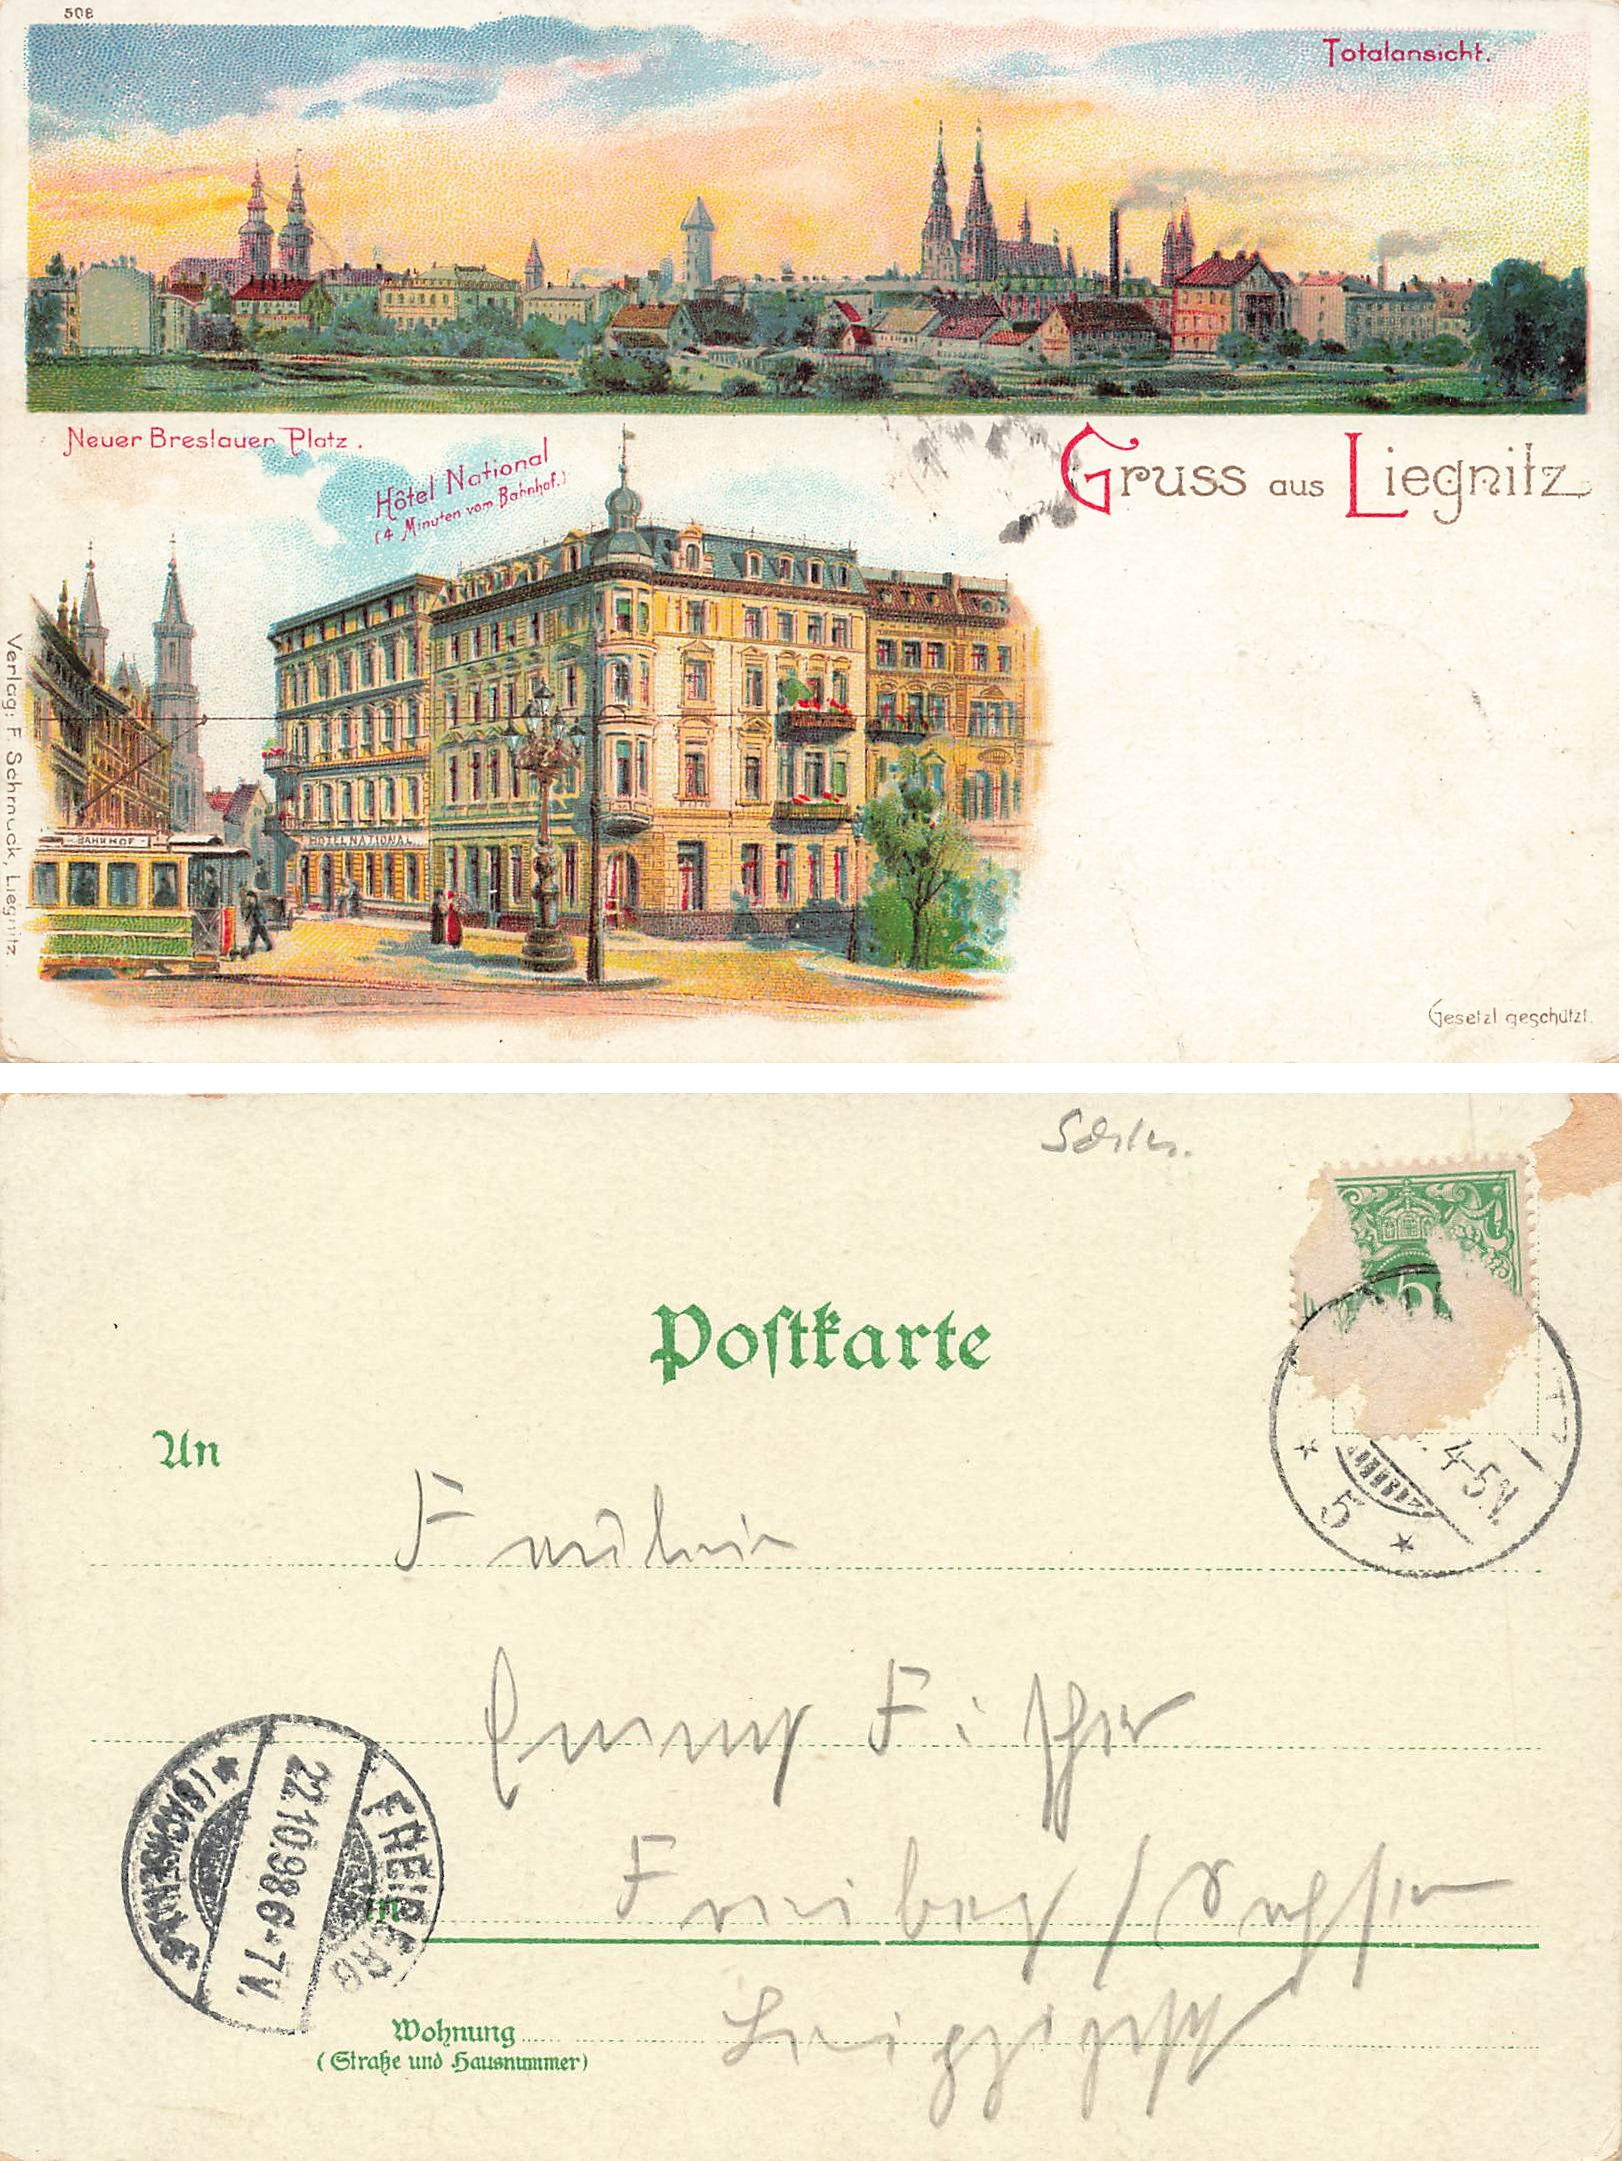 508
Totalansicht.
Neuer Breslauer Platz.
Hôtel National
(4 Minuten vom Bahnhof.)
Gruss aus Liegnitz
BAHNHOF
HOTEL NATIONAL
Verlag: F. Schmuck, Liegnitz.
Gesetzl geschützt.
Postkarte
5
An
4-5N.
* 5 *
Fräulein
Fischer
FREIBERG
22.10.98.6-7V.
* (SACHSEN) *
in
Freiberg / Sachsen
Wohnung
Leipzigerstr
(Straße und Hausnummer)